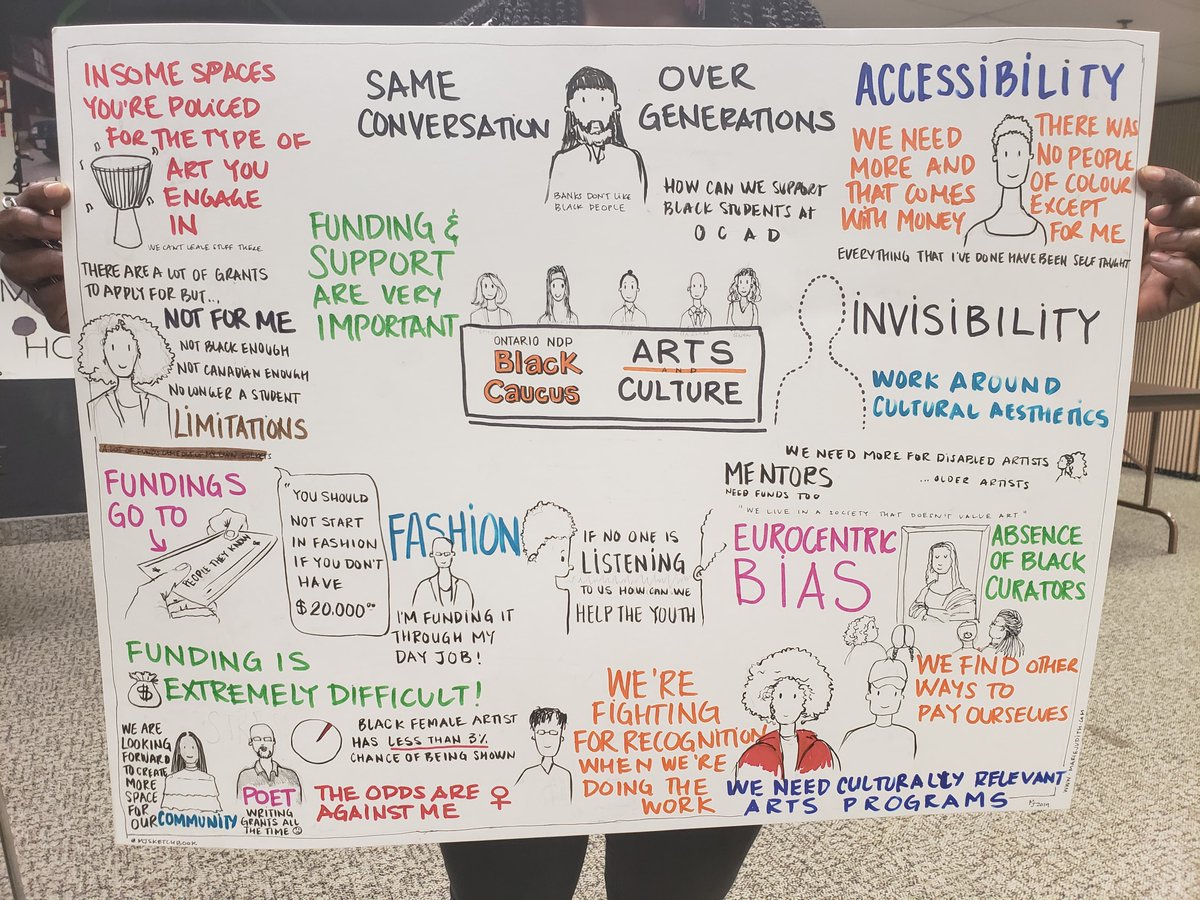 IN SOME SPACES
YOU'RE POLICED
FOR THE TYPE OF
ART YOU
ENGAGE
IN
WE CAN'T LEAVE STUFF THERE
SAME
CONVERSATION
OVER
GENERATIONS
BANKS DON'T LIKE
BLACK PEOPLE
HOW CAN WE SUPPORT
BLACK STUDENTS AT
OCAD
ACCESSIBILITY
WE NEED
MORE AND
THAT COMES
WITH MONEY
THERE WAS
NO PEOPLE
OF COLOUR
EXCEPT
FOR ME
EVERYTHING THAT I'VE DONE HAVE BEEN SELF TAUGHT
FUNDING &
SUPPORT
ARE VERY
IMPORTANT
THERE ARE A LOT OF GRANTS
TO APPLY FOR BUT...
NOT FOR ME
NOT BLACK ENOUGH
NOT CANADIAN ENOUGH
NO LONGER A STUDENT
LIMITATIONS
A LOT OF FUNDS COME OUT OF MY OWN POCKETS
ONTARIO NDP
Black
Caucus
ARTS
AND
CULTURE
INVISIBILITY
WORK AROUND
CULTURAL AESTHETICS
WE NEED MORE FOR DISABLED ARTISTS
...OLDER ARTISTS
MENTORS
NEED FUNDS TOO
"WE LIVE IN A SOCIETY THAT DOESN'T VALUE ART"
FUNDINGS
GO TO
PEOPLE THEY KNOW
"YOU SHOULD
NOT START
IN FASHION
IF YOU DON'T
HAVE
$20.000⁰⁰
FASHION
I'M FUNDING IT
THROUGH MY
DAY JOB!
IF NO ONE IS
LISTENING
TO US HOW CAN WE
HELP THE YOUTH
EUROCENTRIC
BIAS
ABSENCE
OF BLACK
CURATORS
FUNDING IS
$
EXTREMELY DIFFICULT!
WE ARE
LOOKING
FORWARD
TO CREATE
MORE
SPACE
FOR
OUR COMMUNITY
POET
WRITING
GRANTS ALL
THE TIME
BLACK FEMALE ARTIST
HAS LESS THAN 3%
CHANCE OF BEING SHOWN
THE ODDS ARE
AGAINST ME ♀
WE'RE
FIGHTING
FOR RECOGNITION
WHEN WE'RE
DOING THE
WORK
WE FIND OTHER
WAYS TO
PAY OURSELVES
WE NEED CULTURALLY RELEVANT
ARTS PROGRAMS
2019
@MJSKETCHBOOK